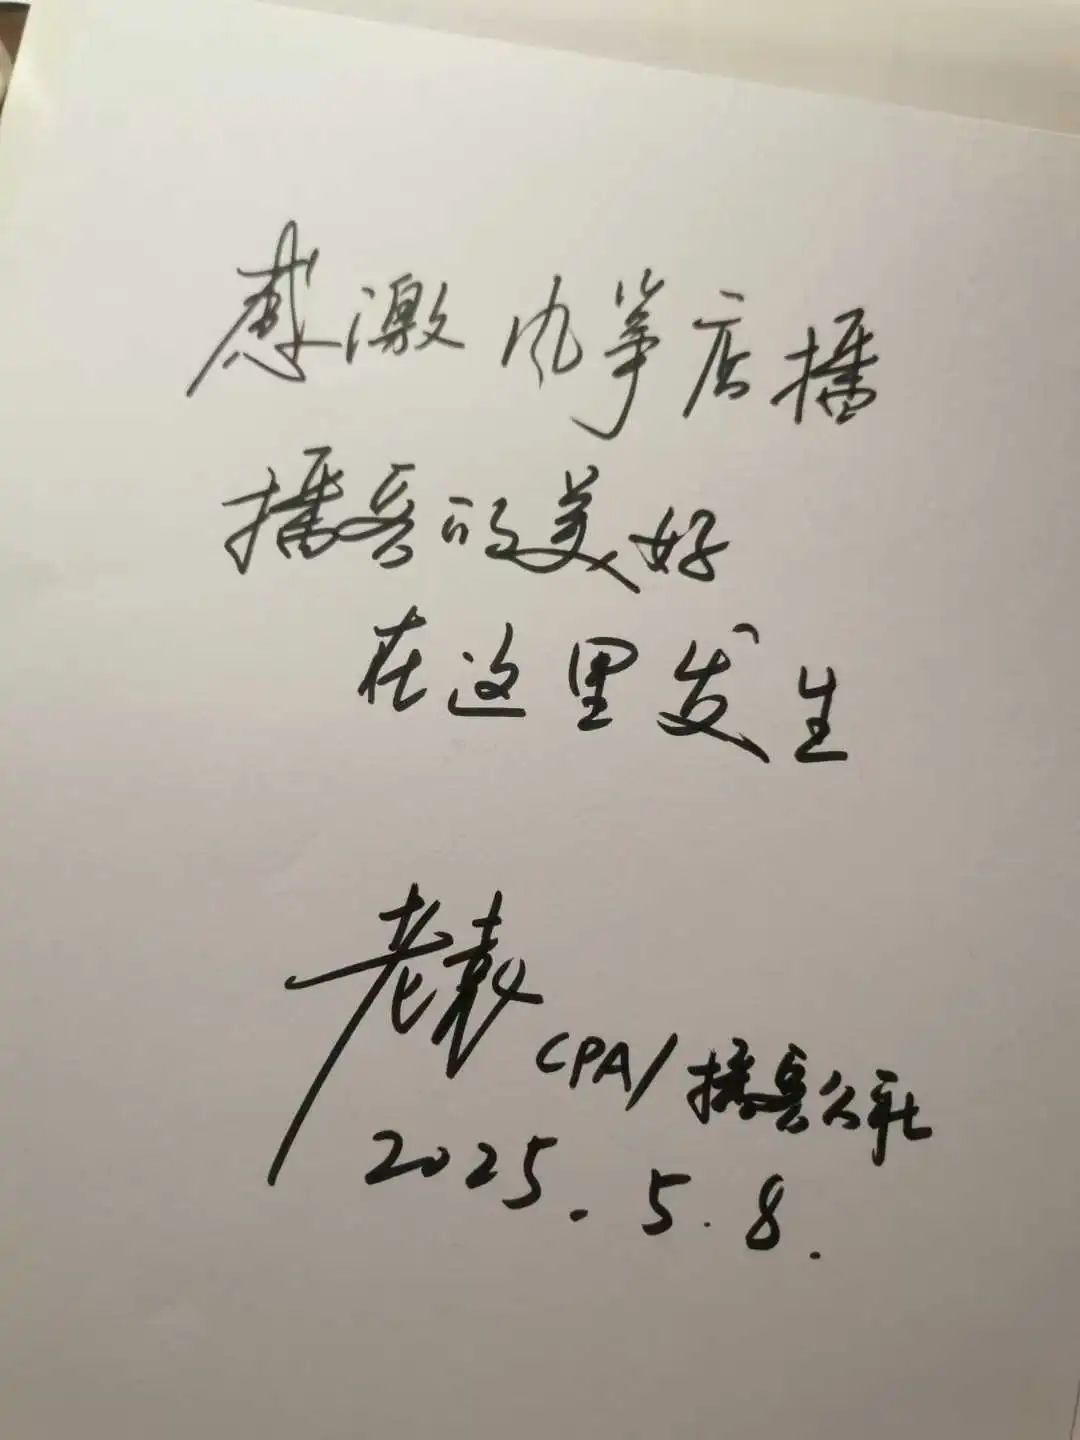 感激风筝店播
播客的美好
在这里发生
老袁
CPA/播客公社
2025.5.8.